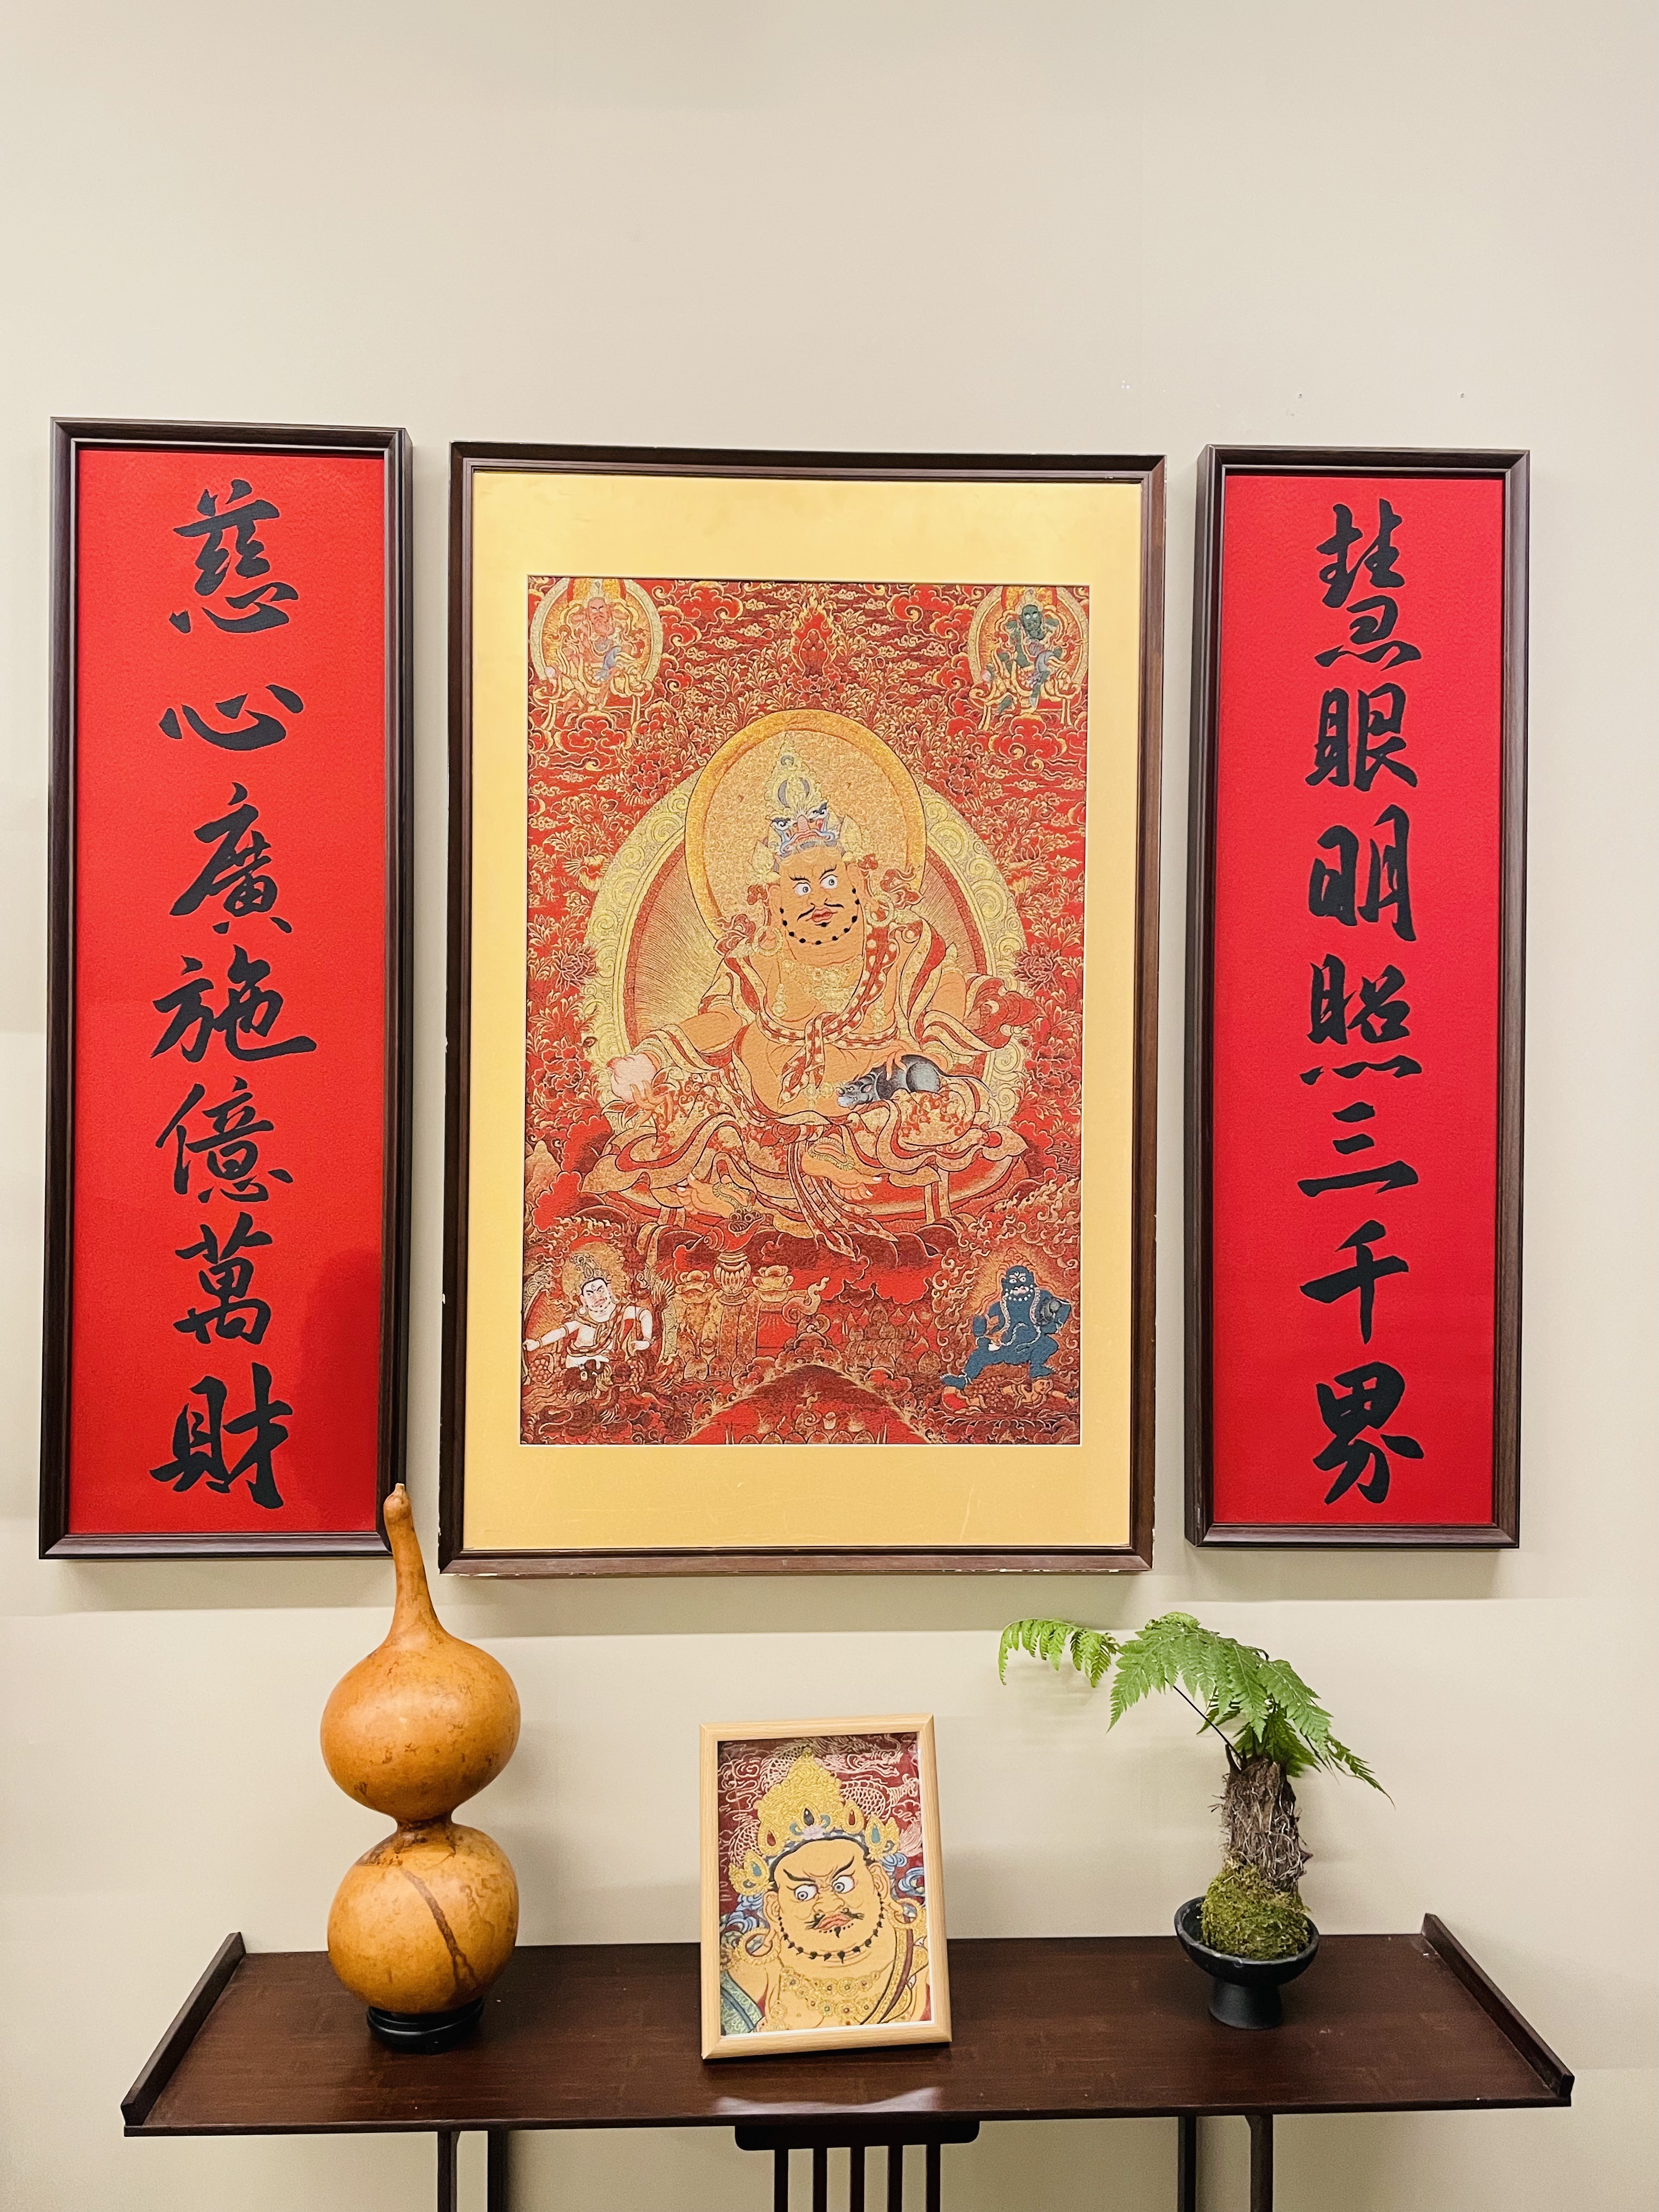 慧眼明照三千界
慈心廣施億萬財